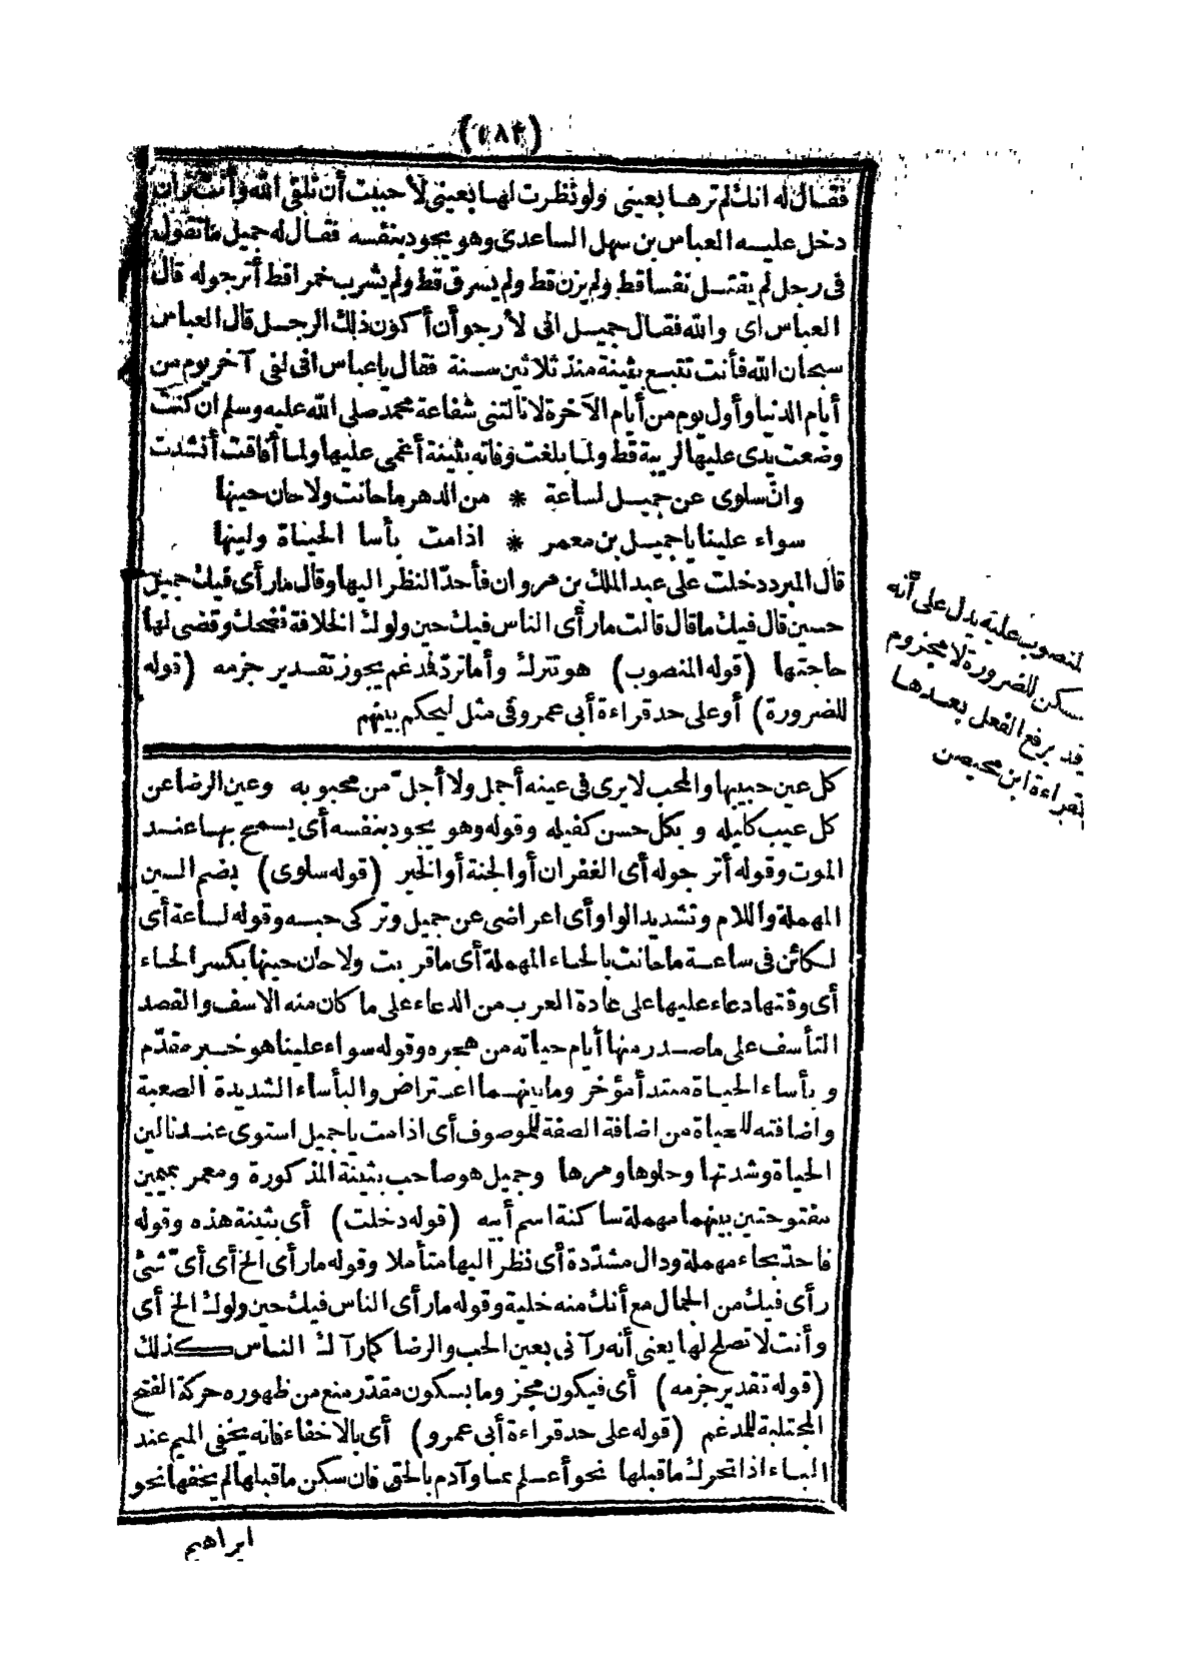 (١٨٢)
فقال له انك لم ترها بعيني ولو نظرت لها بعيني لأحببت أن تلقى الله وأنت زان
دخل عليه العباس بن سهل الساعدي وهو يجود بنفسه فقال له جميل ما تقول
في رجل لم يقتل نفسا قط ولم يزن قط ولم يسرق قط ولم يشرب خمرا قط أترجوله قال
العباس اى والله فقال جميل انى لأرجو أن أكون ذلك الرجل قال العباس
سبحان الله فأنت تتبع بثينة منذ ثلاثين سنة فقال يا عباس انى لفى آخر يوم من
أيام الدنيا وأول يوم من أيام الآخرة لا نالتنى شفاعة محمد صلى الله عليه وسلم ان كنت
وضعت يدى عليها لريبة قط ولما بلغت وفاته بثينة أغمى عليها ولما أفاقت أنشدت
وان سلوى عن جميل لساعة * من الدهر ما حانت ولا حان حينها
سواء علينا يا جميل بن معمر * اذا مت بأسا الحياة ولينها
قال المبرد دخلت على عبد الملك بن مروان فأحدّ النظر اليها وقال ما رأى فيك جميل
حسين قال فيك ما قال قالت ما رأى الناس فيك حين ولوك الخلافة فضحك وقضى لها
حاجتها (قوله المنصوب) هو تترك وأما تردّ لمدغم يجوز تقدير جزمه (قوله
للضرورة) أو على حد قراءة أبي عمرو في مثل ليحكم بينهم
لمنصوب عليه يدل على أنه
سكن للضرورة لا مجزوم
قد يرفع الفعل بعدها
قراءة ابن محيصن
كل عين حبيبها والمحب لا يرى في عينه أجمل ولا أجلّ من محبوبه وعين الرضا عن
كل عيب كليله وبكل حسن كفيله وقوله وهو يجود بنفسه أى يسمح بها عند
الموت وقوله أترجوله أى الغفران أو الجنة أو الخير (قوله سلوى) بضم السين
المهملة واللام وتشديد الواو أى اعراضى عن جميل وتركى حبه وقوله لساعة أى
لكائن في ساعة ما حانت بالحاء المهملة أى ما قربت ولا حان حينها بكسر الحاء
أى وقتها دعاء عليها على عادة العرب من الدعاء على ما كان منه الاسف والقصد
التأسف على ما صدر منها أيام حياته من هجره وقوله سواء علينا هو خبر مقدّم
وبأساء الحياة مبتدأ مؤخر وما بينهما اعتراض والبأساء الشديدة الصعبة
واضافته للحياة من اضافة الصفة للموصوف أى اذا مت يا جميل استوى عندنا لين
الحياة وشدتها وحلوها ومرها وجميل هو صاحب بثينة المذكورة ومعمر بميمين
مفتوحتين بينهما مهملة ساكنة اسم أبيه (قوله دخلت) أى بثينة هذه وقوله
فاحدّ بحاء مهملة ودال مشدّدة أى نظر اليها متأملا وقوله ما رأى الخ أى أىّ شئ
رأى فيك من الجمال مع أنك منه خلية وقوله ما رأى الناس فيك حين ولوك الخ أى
وأنت لا تصلح لها يعنى أنه رآنى بعين الحب والرضا كما رآك الناس كذلك
(قوله تقدير جزمه) أى فيكون مجزوما بسكون مقدّر منع من ظهوره حركة الفتح
المجتلبة للمدغم (قوله على حد قراءة أبى عمرو) أى بالاخفاء فانه يخفى الميم عند
الباء اذا تحرك ما قبلها نحو أعلم بما وآدم بالحق فان سكن ما قبلها لم يخفها نحو
ابراهيم